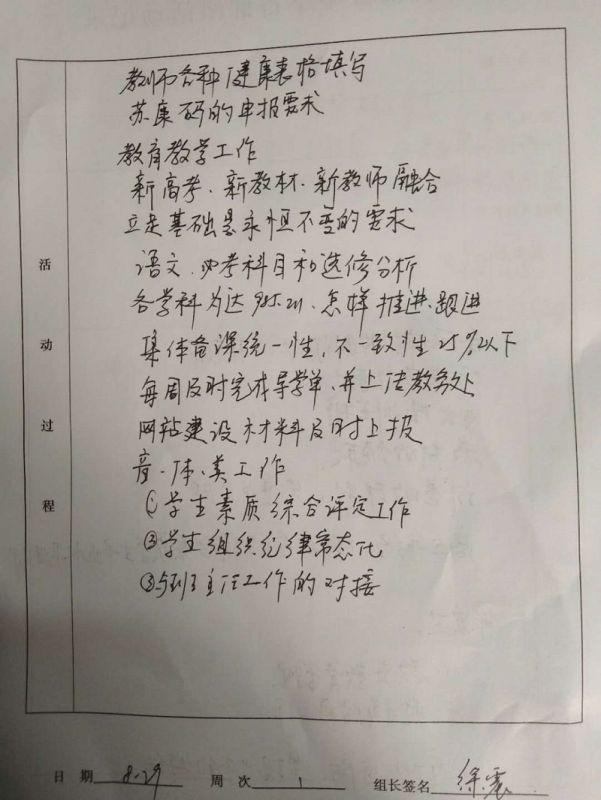 教师各种健康表格填写
苏康码的申报要求
教育教学工作
新高考、新教材、新教师融合
立足基础是永恒不变的要求
语文、必考科目和选修分析
各学科为达、怎样推进、跟进
集体备课统一性，不一致性25%以下
每周及时完成导学单、并上传教务处
网站建设材料及时上报
音、体、美工作
①学生素质综合评定工作
②学生组织纪律常态化
③与班主任工作的对接
活动过程
日期 8.29 周次 1 组长签名 徐震